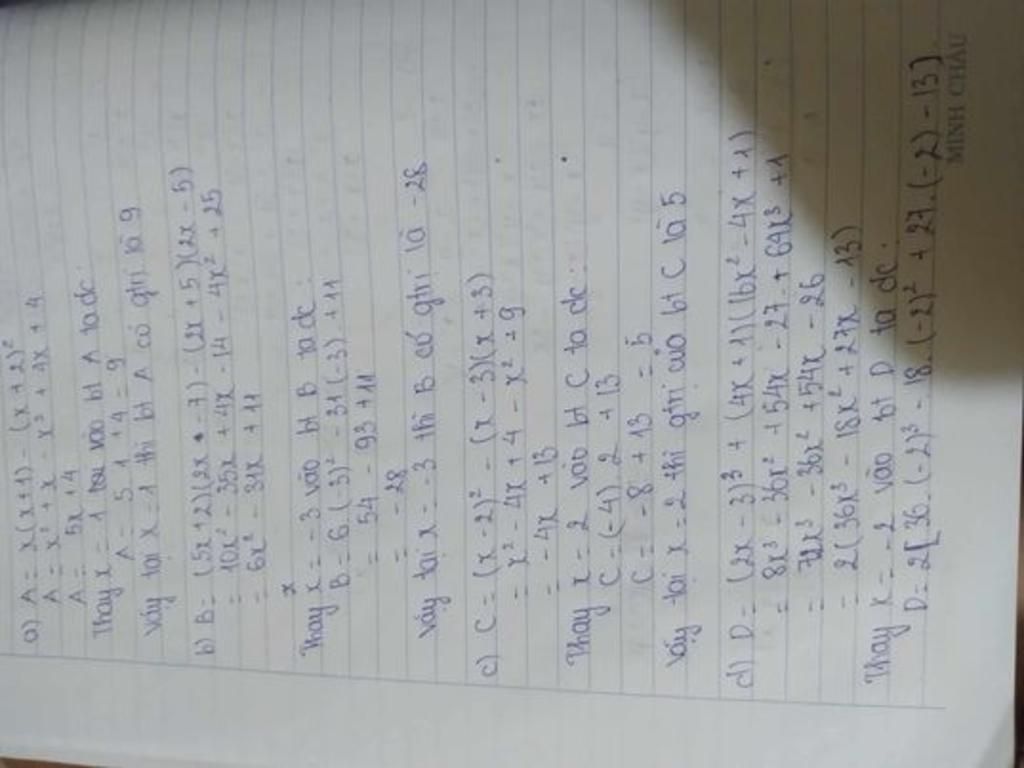 a) A = x(x+1) - (x+2)²
A = x² + x - x² + 4x + 4
A = 5x + 4
Thay x = 1 vào bt A ta dc:
A = 5 . 1 + 4 = 9
Vậy tại x = 1 thì bt A có gtri là 9
b) B = (5x+2)(2x - 7) - (2x+5)(2x-5)
= 10x² - 35x + 4x - 14 - 4x² + 25
= 6x² - 31x + 11
x
Thay x = -3 vào bt B ta dc:
B = 6.(-3)² - 31(-3) + 11
= 54 - 93 + 11
= -28
Vậy tại x = -3 thì B có gtri là -28
c) C = (x-2)² - (x-3)(x+3)
= x² - 4x + 4 - x² + 9
= -4x + 13
Thay x = 2 vào bt C ta dc:
C = (-4) . 2 + 13
C = -8 + 13 = 5
Vậy tại x = 2 thì gtri của bt C là 5
d) D = (2x-3)³ + (4x+1)(16x² - 4x + 1)
= 8x³ - 36x² + 54x - 27 + 64x³ + 1
= 72x³ - 36x² + 54x - 26
= 2(36x³ - 18x² + 27x - 13)
Thay x = -2 vào bt D ta dc:
D = 2[36.(-2)³ - 18.(-2)² + 27.(-2) - 13]
MINH CHÂU